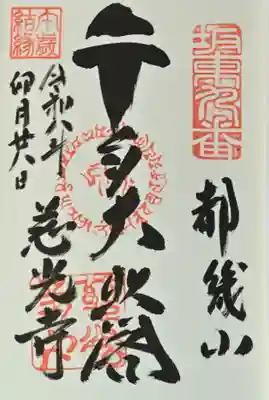 坂東九番
都幾山
千手大悲閣
慈光寺
令和八年
卯月廿八日
午歳
結縁